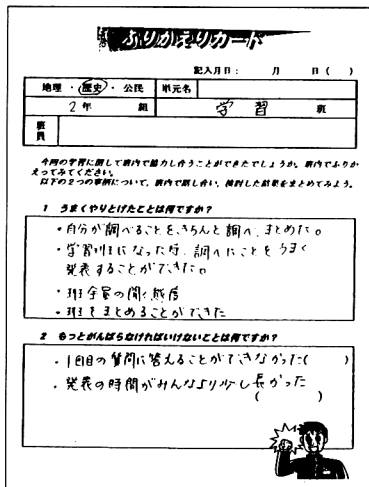 ふりかえりカード
記入月日： 月 日（ ）
地理・歴史・公民 単元名
2年 組 学習 班
班員
今回の学習に関して班内で協力し合うことができたでしょうか。班内でふりか
えってみてください。
以下の2つの事柄について、班内で話し合い、検討した結果をまとめてみよう。
1 うまくやりとげたことは何ですか？
・自分が調べることを、きちんと調べ、まとめた。
・学習班になった時、調べたことをうまく
発表することができた。
・班全員の聞く態度
・班をまとめることができた
2 もっとがんばらなければいけないことは何ですか？
・1回目の質問に答えることができなかった（ ）
・発表の時間がみんなより少し長かった
（ ）